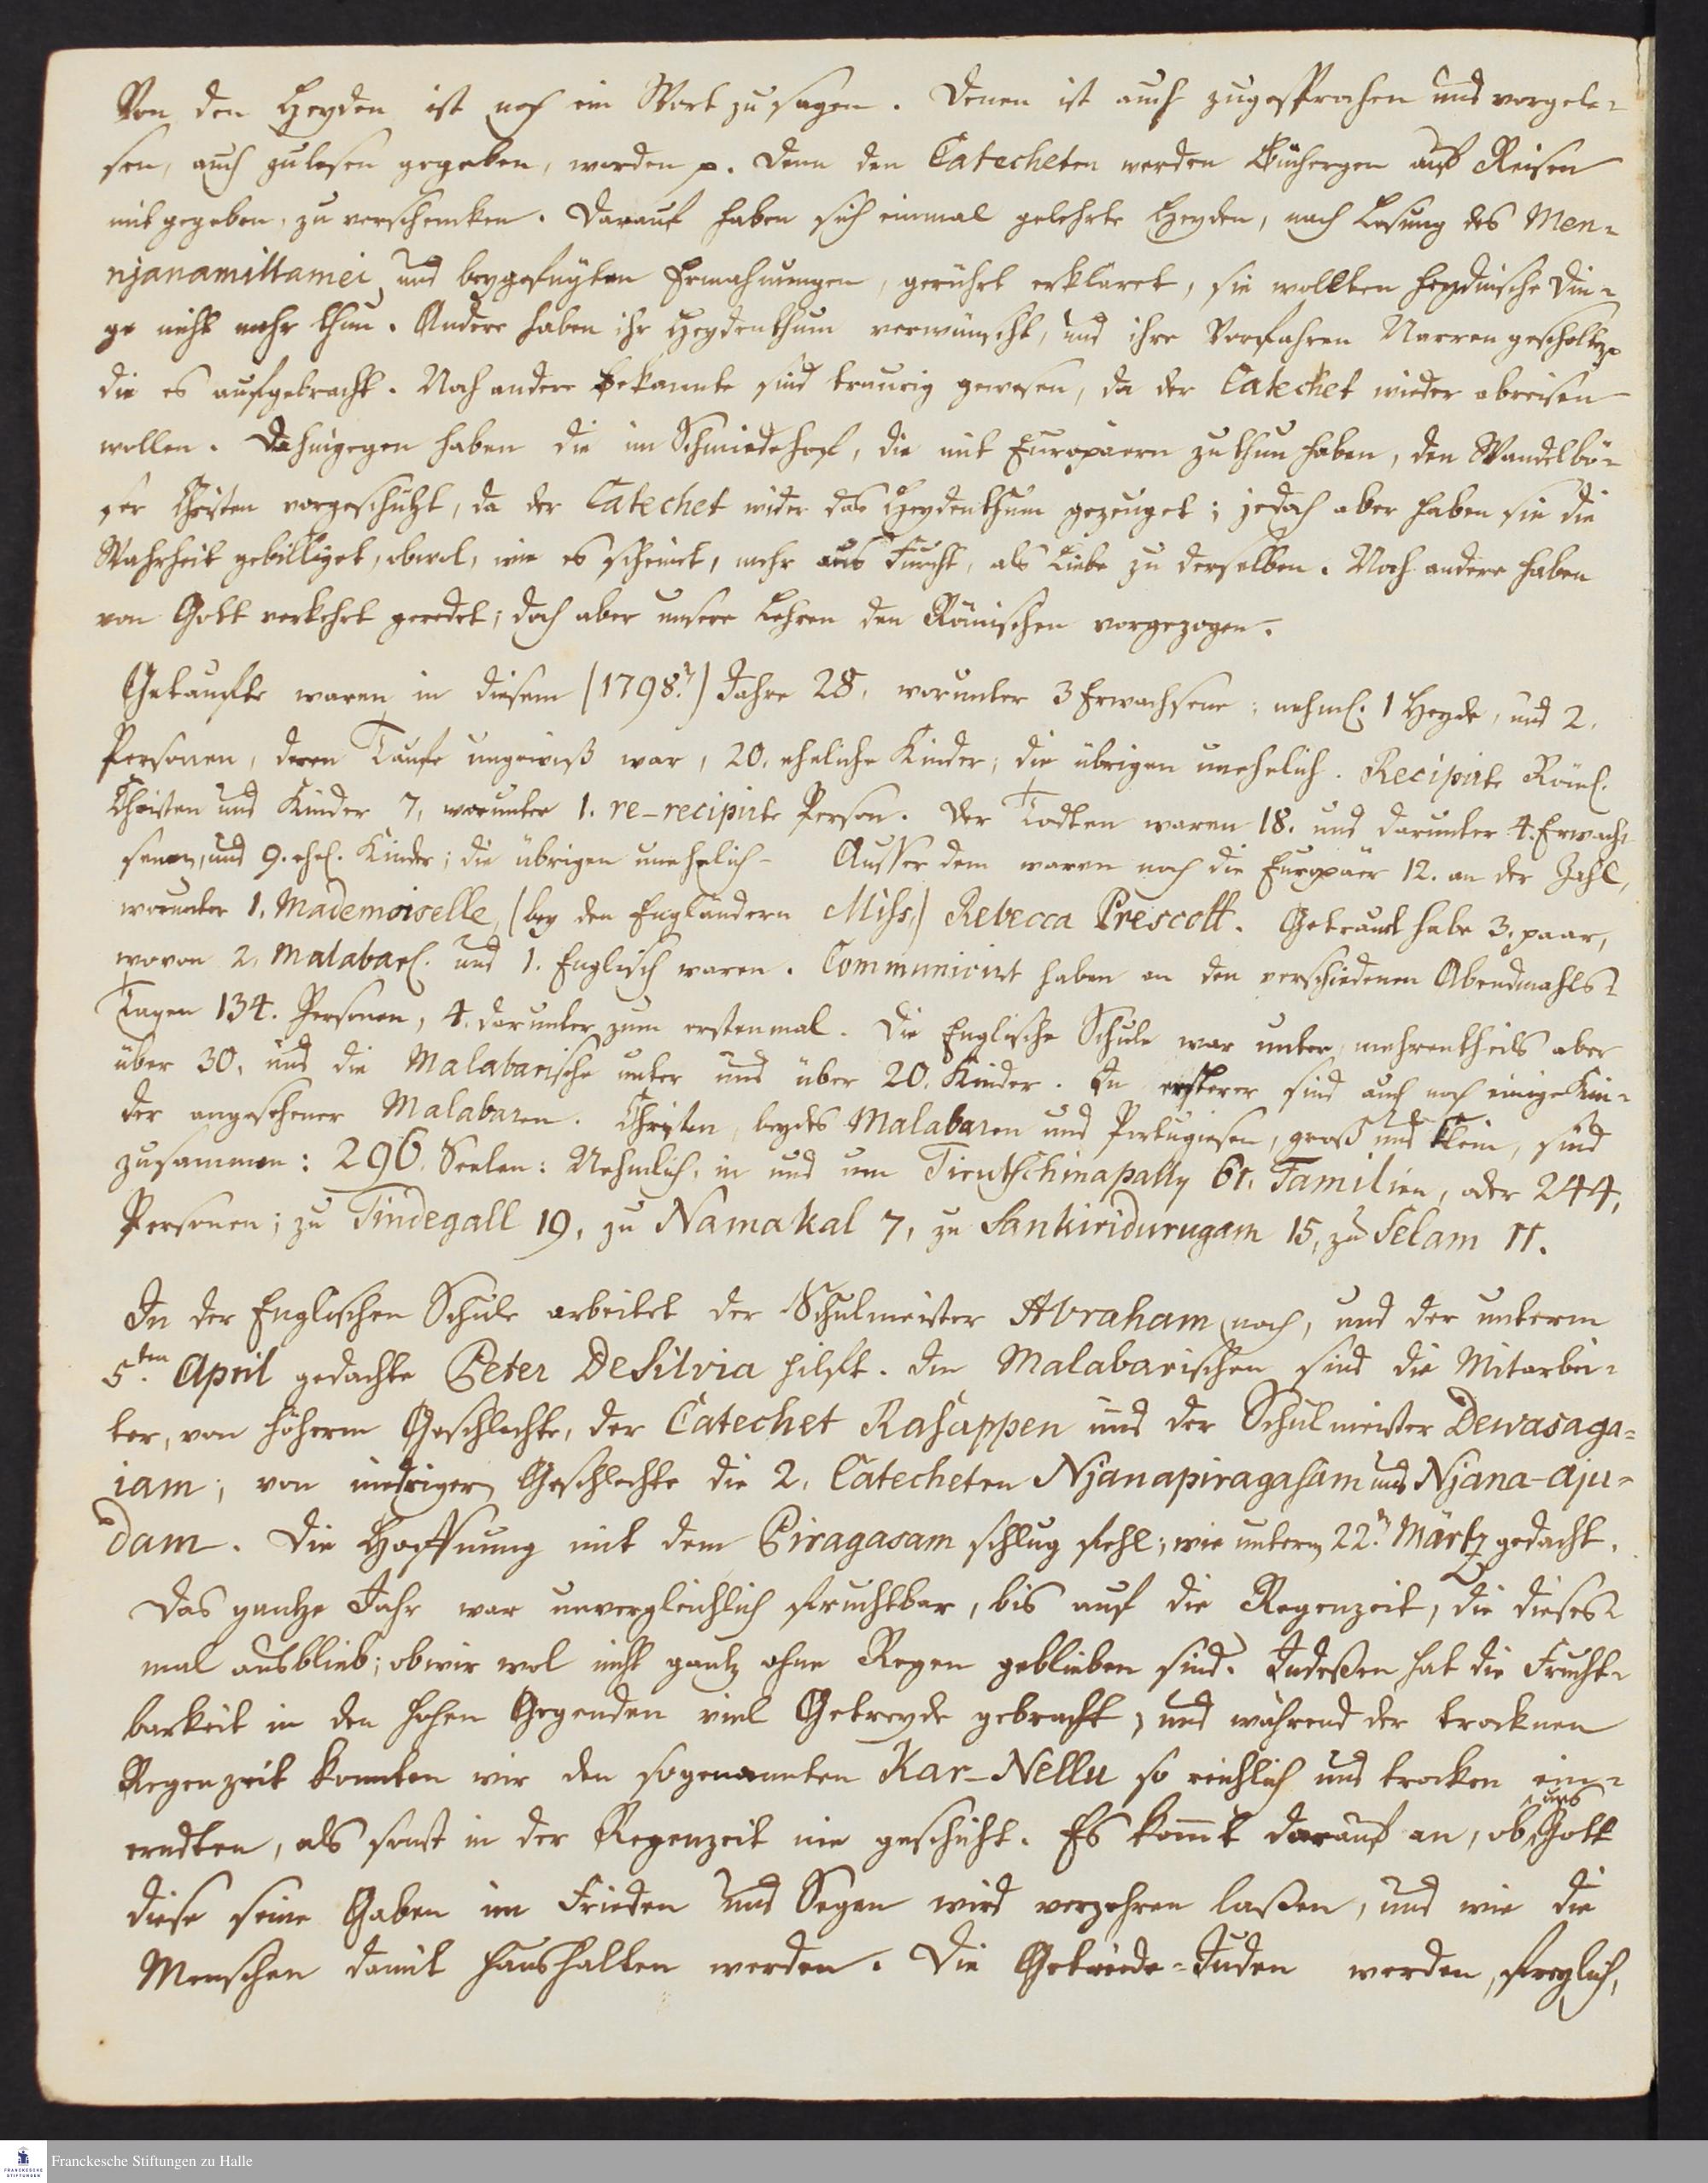 Von den Heyden ist noch ein Wort zu sagen. Denen ist auch zugesprochen und vorgele-
sen, auch zu lesen gegeben, worden p. Denn den Catecheten werden Büchergen auf Reisen
mit gegeben, zu verschencken. Darauf haben sich einmal gelehrte Heyden, nach Lesung des Men-
njanamittamei und beygefügten Ermahnungen, gerührt erkläret, sie wollten heydnische Din-
ge nicht mehr thun. Andere haben ihr Heydenthum verwünscht, und ihre Vorfahren Narren gescholten,
die es aufgebracht. Noch andere Bekannte sind traurig gewesen, da der Catechet wieder abreisen
wollen. Dahingegen haben die im Schmiedehof, die mit Europäern zu thun haben, den Wandel bö-
ser Christen vorgeschützt, da der Catechet wider das Heydenthum gezeuget; jedoch aber haben sie die
Wahrheit gebilliget, obwol, wie es scheint, mehr aus Furcht, als Liebe zu derselben. Noch andere haben
von Gott verkehrt geredet; doch aber unsere Lehren den Römischen vorgezogen.
Getaufte waren in diesem (1798.) Jahre 28, worunter 3 Erwachsene; nehml. 1 Heyde, und 2.
Personen, deren Taufe ungewiß war, 20. eheliche Kinder; die übrigen unehelich. Recipirte Röml.
Christen und Kinder 7, worunter 1. re-recipirte Person. Der Todten waren 18. und darunter 4. Erwach-
senen, und 9. ehel. Kinder; die übrigen unehelich. Ausser dem waren noch die Europäer 12. an der Zahl,
worunter 1. Mademoiselle, (bey den Engländern Miss,) Rebecca Prescott. Getraut habe 3. paar,
wovon 2. Malabarl. und 1. Englisch waren. Communicirt haben an den verschiedenen Abendmahls-
Tagen 134. Personen, 4. darunter zum erstenmal. Die Englische Schule war unter, mehrentheils aber
über 30, und die Malabarische unter und über 20. Kinder. In ersterer sind auch noch einige Kin-
der angesehener Malabaren. Christen, beydes Malabaren und Portugiesen, groß und klein, sind
zusammen: 296. Seelen: Nehmlich, in und um Tirutschinapally 61. Familien, oder 244,
Personen; zu Tindegall 19, zu Namakal 7, zu Sankiridurugam 15, zu Selam 11.
In der Englischen Schule arbeitet der Schulmeister Abraham noch, und der unterm
5.ten April gedachte Peter DeSilvia hilft. Im Malabarischen sind die Mitarbei-
ter, von höherm Geschlechte, der Catechet Rasappen und der Schulmeister Dewasaga-
iam; von niedrigem Geschlechte die 2. Catecheten Njanapiragasam und Njana-aju-
dam. Die Hoffnung mit dem Piragasam schlug fehl; wie unterm 22. Märtz gedacht.
Das gantze Jahr war unvergleichlich fruchtbar, bis auf die Regenzeit, die dieses-
mal ausblieb; ob wir wol nicht gantz ohne Regen geblieben sind. Indeßen hat die Frucht-
barkeit in den hohen Gegenden viel Getreyde gebracht, und während der trocknen
Regenzeit konnten wir den sogenannten Kar-Nellu so reichlich und trocken ein-
erndten, als sonst in der Regenzeit nie geschieht. Es komt darauf an, ob uns Gott
diese seine Gaben im Frieden und Segen wird verzehren laßen, und wie die
Menschen damit haushalten werden. Die Getreide-Juden werden, freylich,
FRANCKESCHE STIFTUNGEN
Franckesche Stiftungen zu Halle